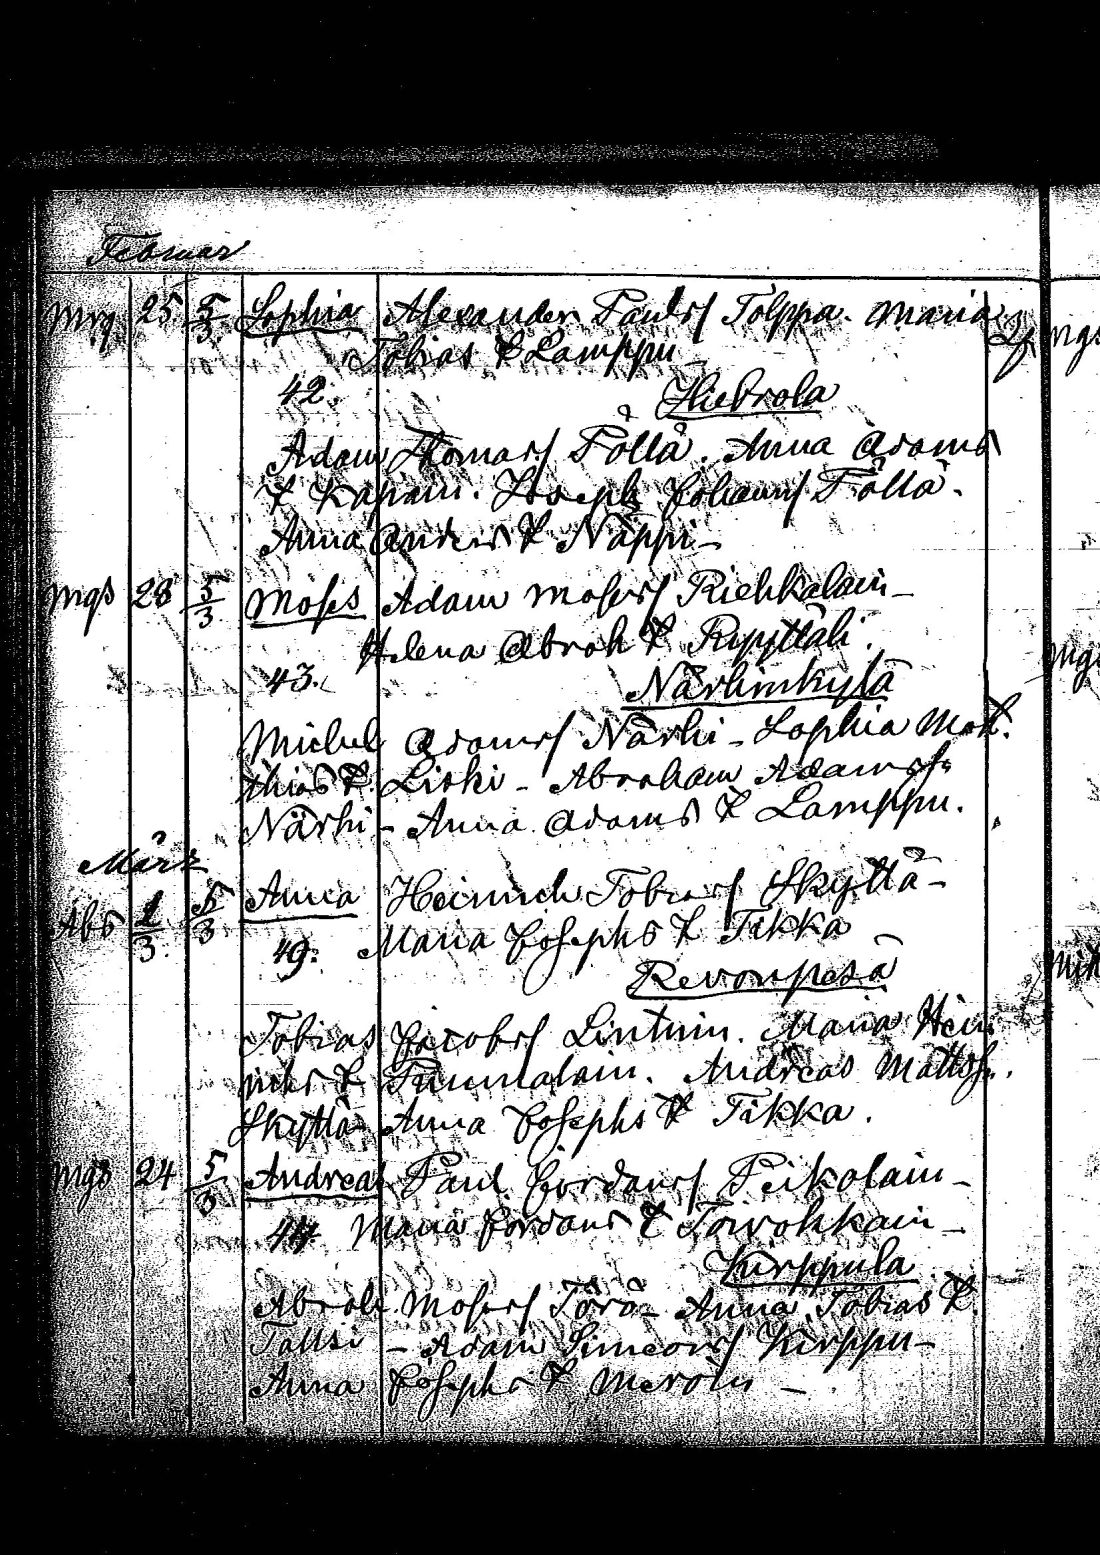 Februar
Mrg 25 5/3 Sophia Alexander Paulsf Tolppa. Maria
Tobias T. Lamppu
42. Hiebrola
Adam Thomasf Pöllä. Anna Adams
T. Kapain. Joseph Johansf Pöllä.
Anna Anders T. Näppi
mgs 28 5/3 Moses Adam Mosesf Riehkalain
Helena Abrah T. Ryyttäli.
43. Närhinkylä
Michel Adamsf Närhi - Sophia Mat.
thias T. Liski - Abraham Adamsf
Närhi - Anna Adams T. Lamppu.
März
Abs 1/3 5/3 Anna Heinrich Tobiasf Skyttä
49. Maria Josephs T. Tikka
Revonpesä
Tobias Jacobsf Lintuin. Maria Hein
richs T. Andreas Mattsf.
Skyttä Anna Josephs T. Tikka.
mgs 24 5/3 Andreas Paul Jordansf Peikolain
44 Maria Jordans T. Toivohkain
Kirppula
Abrah Mosesf Törö - Anna Tobias T.
Tallsi - Adam Simeonsf Kirppu
Anna Josephs T.